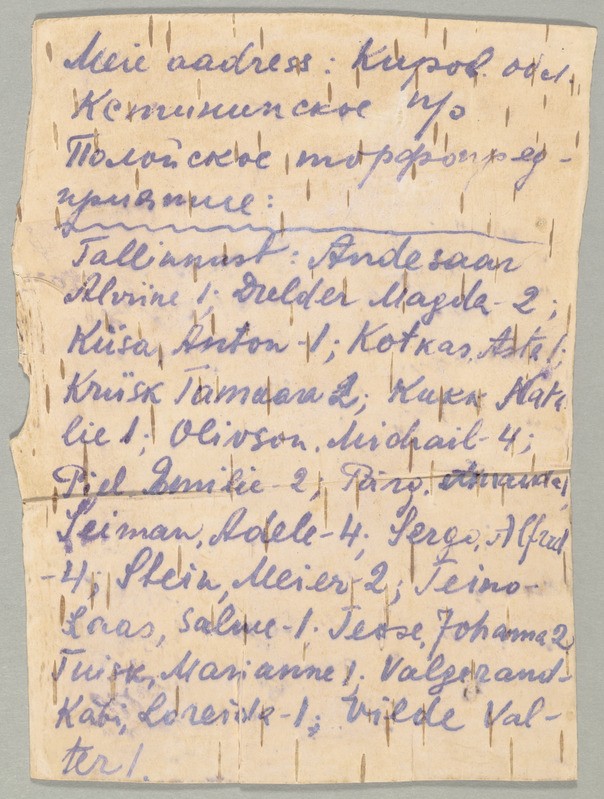 Meie aadress: Киров. обл.
Кстининское п/о
Полойское торфопред-
приятие:
Tallinnast: Andesaar
Alvine 1; Drelder Magda-2;
Kiisa, Anton-1; Kotkas, Asta 1;
Kriisk Tamaara 2; Kukk Nata
lie 1; Olivson, Michail-4;
Piel Emilie-2; Pärg,
Seiman, Adele-4; Sergo, Alfred
-4; Stein, Meier-2; Teino-
Laas, Salme-1. Teose, Johanna 2
Tuisk, Marianne 1; Valgerand-
Kabi, Loreida-1; Vilde Val-
ter 1.